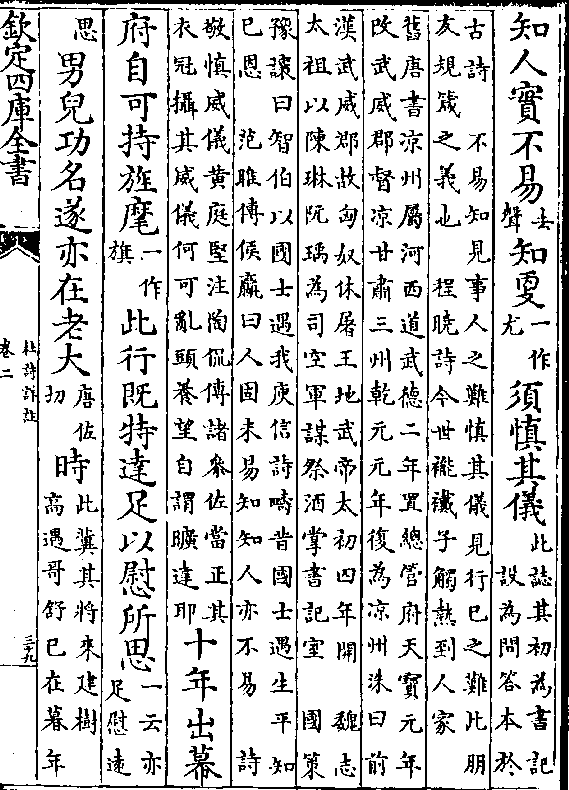 知人實不易去聲知更一作尤須慎其儀此誌其初為書記設為問答本於
古詩 不易知見事人之難慎其儀見行已之難此朋
友規箴之義也 程曉詩今世褦襶子觸熱到人家
舊唐書凉州屬河西道武德二年置總管府天寶元年
改武威郡督凉甘肅三州乾元元年復為凉州洙曰前
漢武威郡故匈奴休屠王地武帝太初四年開 魏志
太祖以陳琳阮瑀為司空軍謀祭酒掌書記室 國策
豫讓曰智伯以國士遇我庾信詩疇昔國士遇生平知
已恩 范雎傳侯嬴曰人固未易知知人亦不易 詩
敬慎威儀黄庭堅注陶侃傳諸叅佐當正其
衣冠攝其威儀何可亂頭養望自謂曠達耶十年出幕
府自可持旌麾一作旗此行既特達足以慰所思一云亦足慰遠
思 男兒功名遂亦在老大唐佐切時此冀其將來建樹高遇哥舒已在暮年
欽定四庫全書
杜詩詳註
卷二
三十九